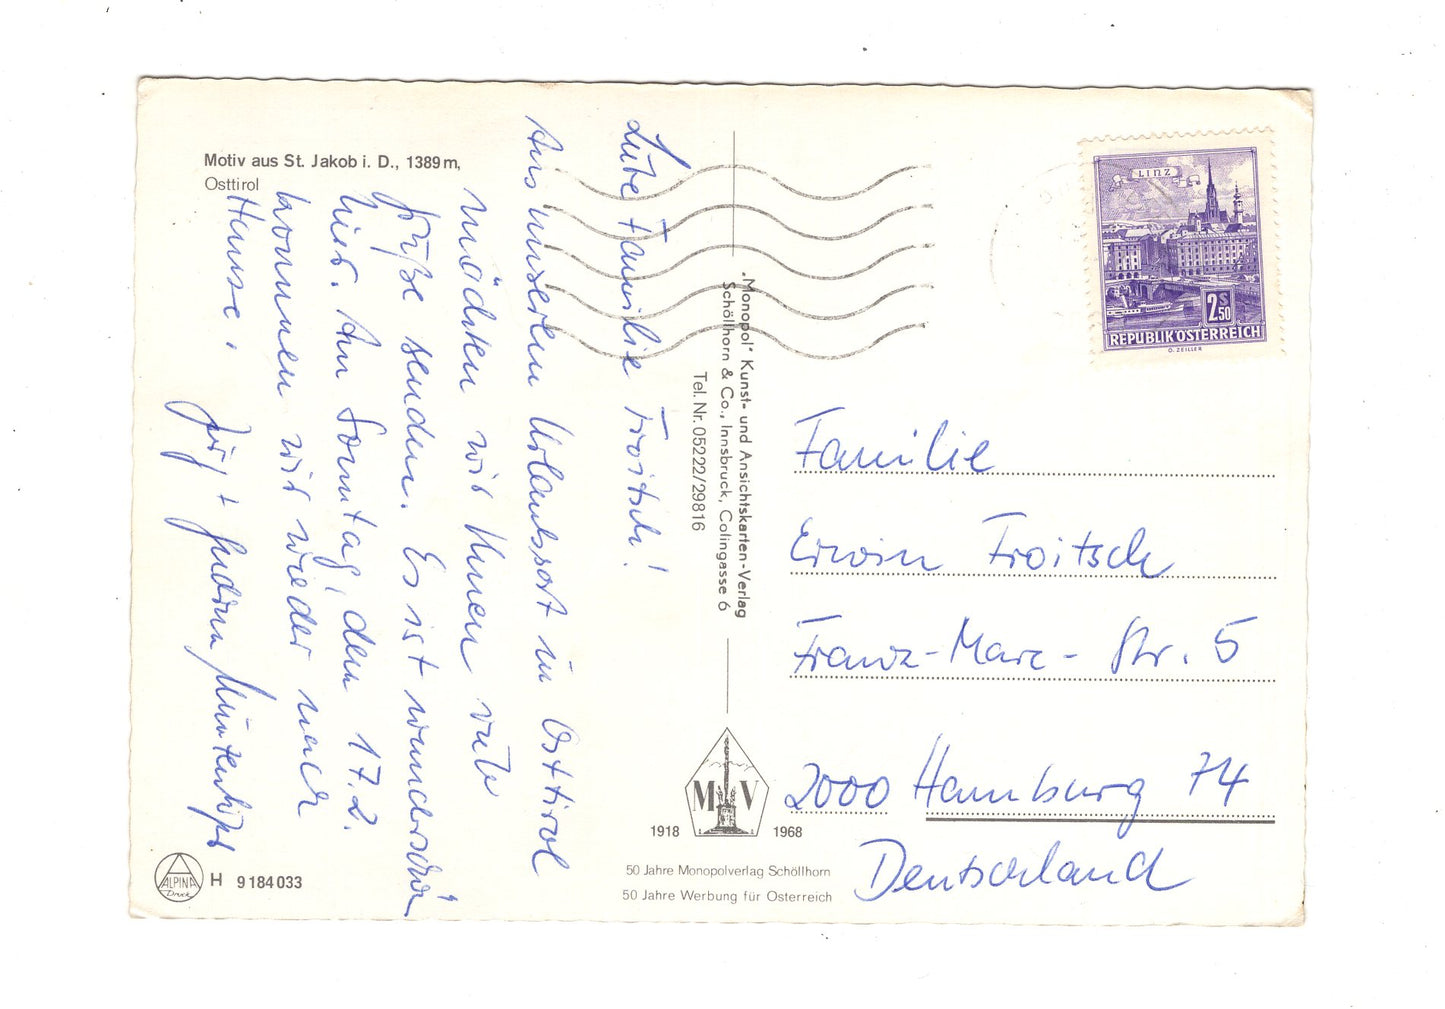 Motiv aus St. Jakob i. D., 1389 m,
Osttirol
Liebe Familie Froitsch!
Aus unserem Urlaubsort in Osttirol
möchten wir Ihnen viele
Grüße senden. Es ist wunderschön
hier. Am Sonntag, den 17.2.
kommen wir wieder nach
Hause.
Jörg +
"Monopol" Kunst- und Ansichtskarten-Verlag
Schöllhorn & Co., Innsbruck, Colingasse 6
Tel. Nr. 05222/29816
LINZ
2 S 50
REPUBLIK ÖSTERREICH
O. ZEILLER
Familie
Erwin Froitsch
Franz-Marc-Str. 5
2000 Hamburg 74
Deutschland
M V
1918 1968
50 Jahre Monopolverlag Schöllhorn
50 Jahre Werbung für Österreich
ALPINA
Druck
H 9184033